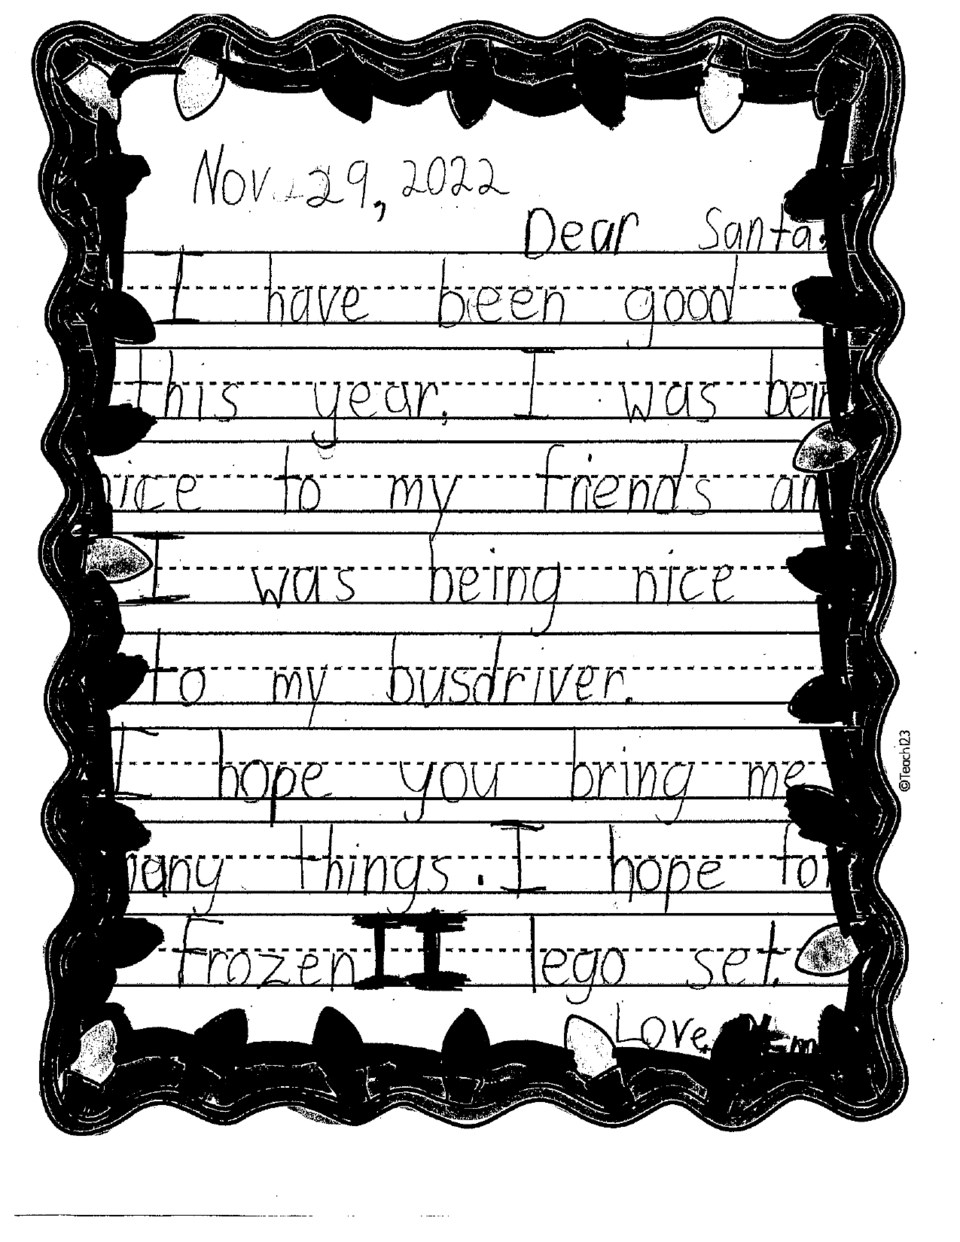 Nov. 29, 2022
Dear Santa,
I have been good
this year. I was bein
nice to my friends an
I was being nice
to my busdriver.
I hope you bring me
many things. I hope for
Frozen II lego set.
Love,
©Teach123